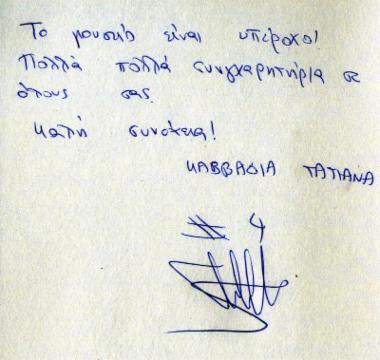 Το μουσείο είναι υπέροχο!
Πολλά πολλά συνγχαρητήρια σε
όλους σας.
Καλή συνέχεια!
ΚΑΒΒΑΔΙΑ ΤΑΤΙΑΝΑ
# 4